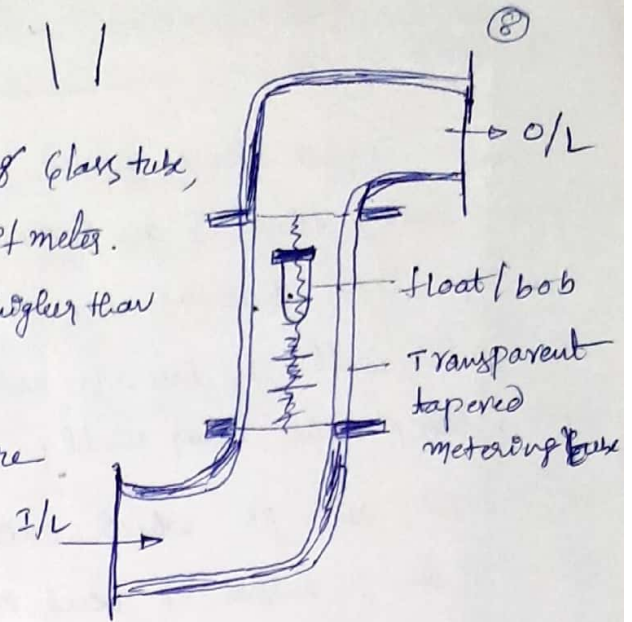 8
of Glass tube,
meter.
higher than
O/L
float/bob
Transparent
tapered
metering tube
I/L